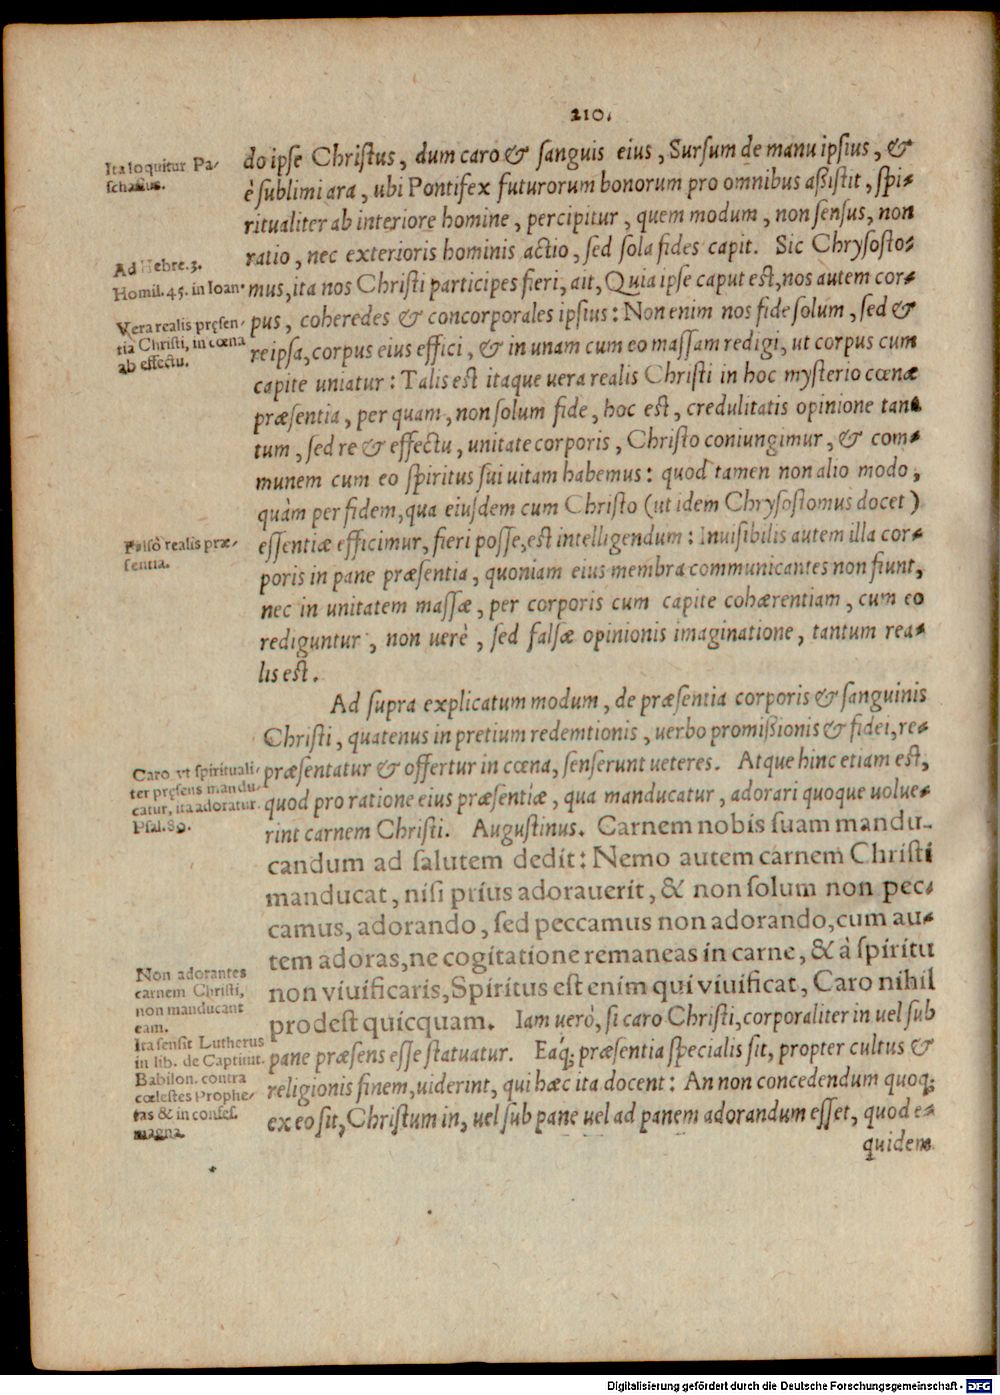 210.
Ita loquitur Pa-
schasius.
do ipse Christus, dum caro & sanguis eius, Sursum de manu ipsius, &
è sublimi ara, ubi Pontifex futurorum bonorum pro omnibus aßistit, spi-
ritualiter ab interiore homine, percipitur, quem modum, non sensus, non
ratio, nec exterioris hominis actio, sed sola fides capit. Sic Chrysosto-
Ad Hebre. 3.
Homil. 45. in Ioan.
mus, ita nos Christi participes fieri, ait, Quia ipse caput est, nos autem cor-
Vera realis pręsen-
tia Christi, in cœna
ab effectu.
pus, coheredes & concorporales ipsius: Non enim nos fide solum, sed &
reipsa, corpus eius effici, & in unam cum eo massam redigi, ut corpus cum
capite uniatur: Talis est itaque uera realis Christi in hoc mysterio cœnæ
præsentia, per quam, non solum fide, hoc est, credulitatis opinione tan-
tum, sed re & effectu, unitate corporis, Christo coniungimur, & com-
munem cum eo spiritus sui uitam habemus: quod tamen non alio modo,
quàm per fidem, qua eiusdem cum Christo (ut idem Chrysostomus docet)
Falsò realis præ-
sentia.
essentiæ efficimur, fieri posse, est intelligendum: Inuisibilis autem illa cor-
poris in pane præsentia, quoniam eius membra communicantes non fiunt,
nec in unitatem massæ, per corporis cum capite cohærentiam, cum eo
rediguntur, non uerè, sed falsæ opinionis imaginatione, tantum rea-
lis est.
Ad supra explicatum modum, de præsentia corporis & sanguinis
Christi, quatenus in pretium redemtionis, uerbo promißionis & fidei, re-
Caro vt spirituali-
ter pręsens mandu-
catur, ita adoratur.
Psal. 89.
præsentatur & offertur in cœna, senserunt ueteres. Atque hinc etiam est,
quod pro ratione eius præsentiæ, qua manducatur, adorari quoque uolue-
rint carnem Christi. Augustinus. Carnem nobis suam mandu-
candum ad salutem dedit: Nemo autem carnem Christi
manducat, nisi prius adorauerit, & non solum non pec-
camus, adorando, sed peccamus non adorando, cum au-
tem adoras, ne cogitatione remaneas in carne, & à spiritu
Non adorantes
carnem Christi,
non manducant
eam.
non viuificaris, Spiritus est enim qui viuificat, Caro nihil
prodest quicquam. Iam uerò, si caro Christi, corporaliter in uel sub
Ita sensit Lutherus
in lib. de Captiuit.
Babilon. contra
cœlestes Prophe-
tas & in confes.
magna.
pane præsens esse statuatur. Eaq́; præsentia specialis sit, propter cultus &
religionis finem, uiderint, qui hæc ita docent: An non concedendum quoq;
ex eo sit, Christum in, uel sub pane uel ad panem adorandum esset, quod e-
quidem
Digitalisierung gefördert durch die Deutsche Forschungsgemeinschaft - DFG